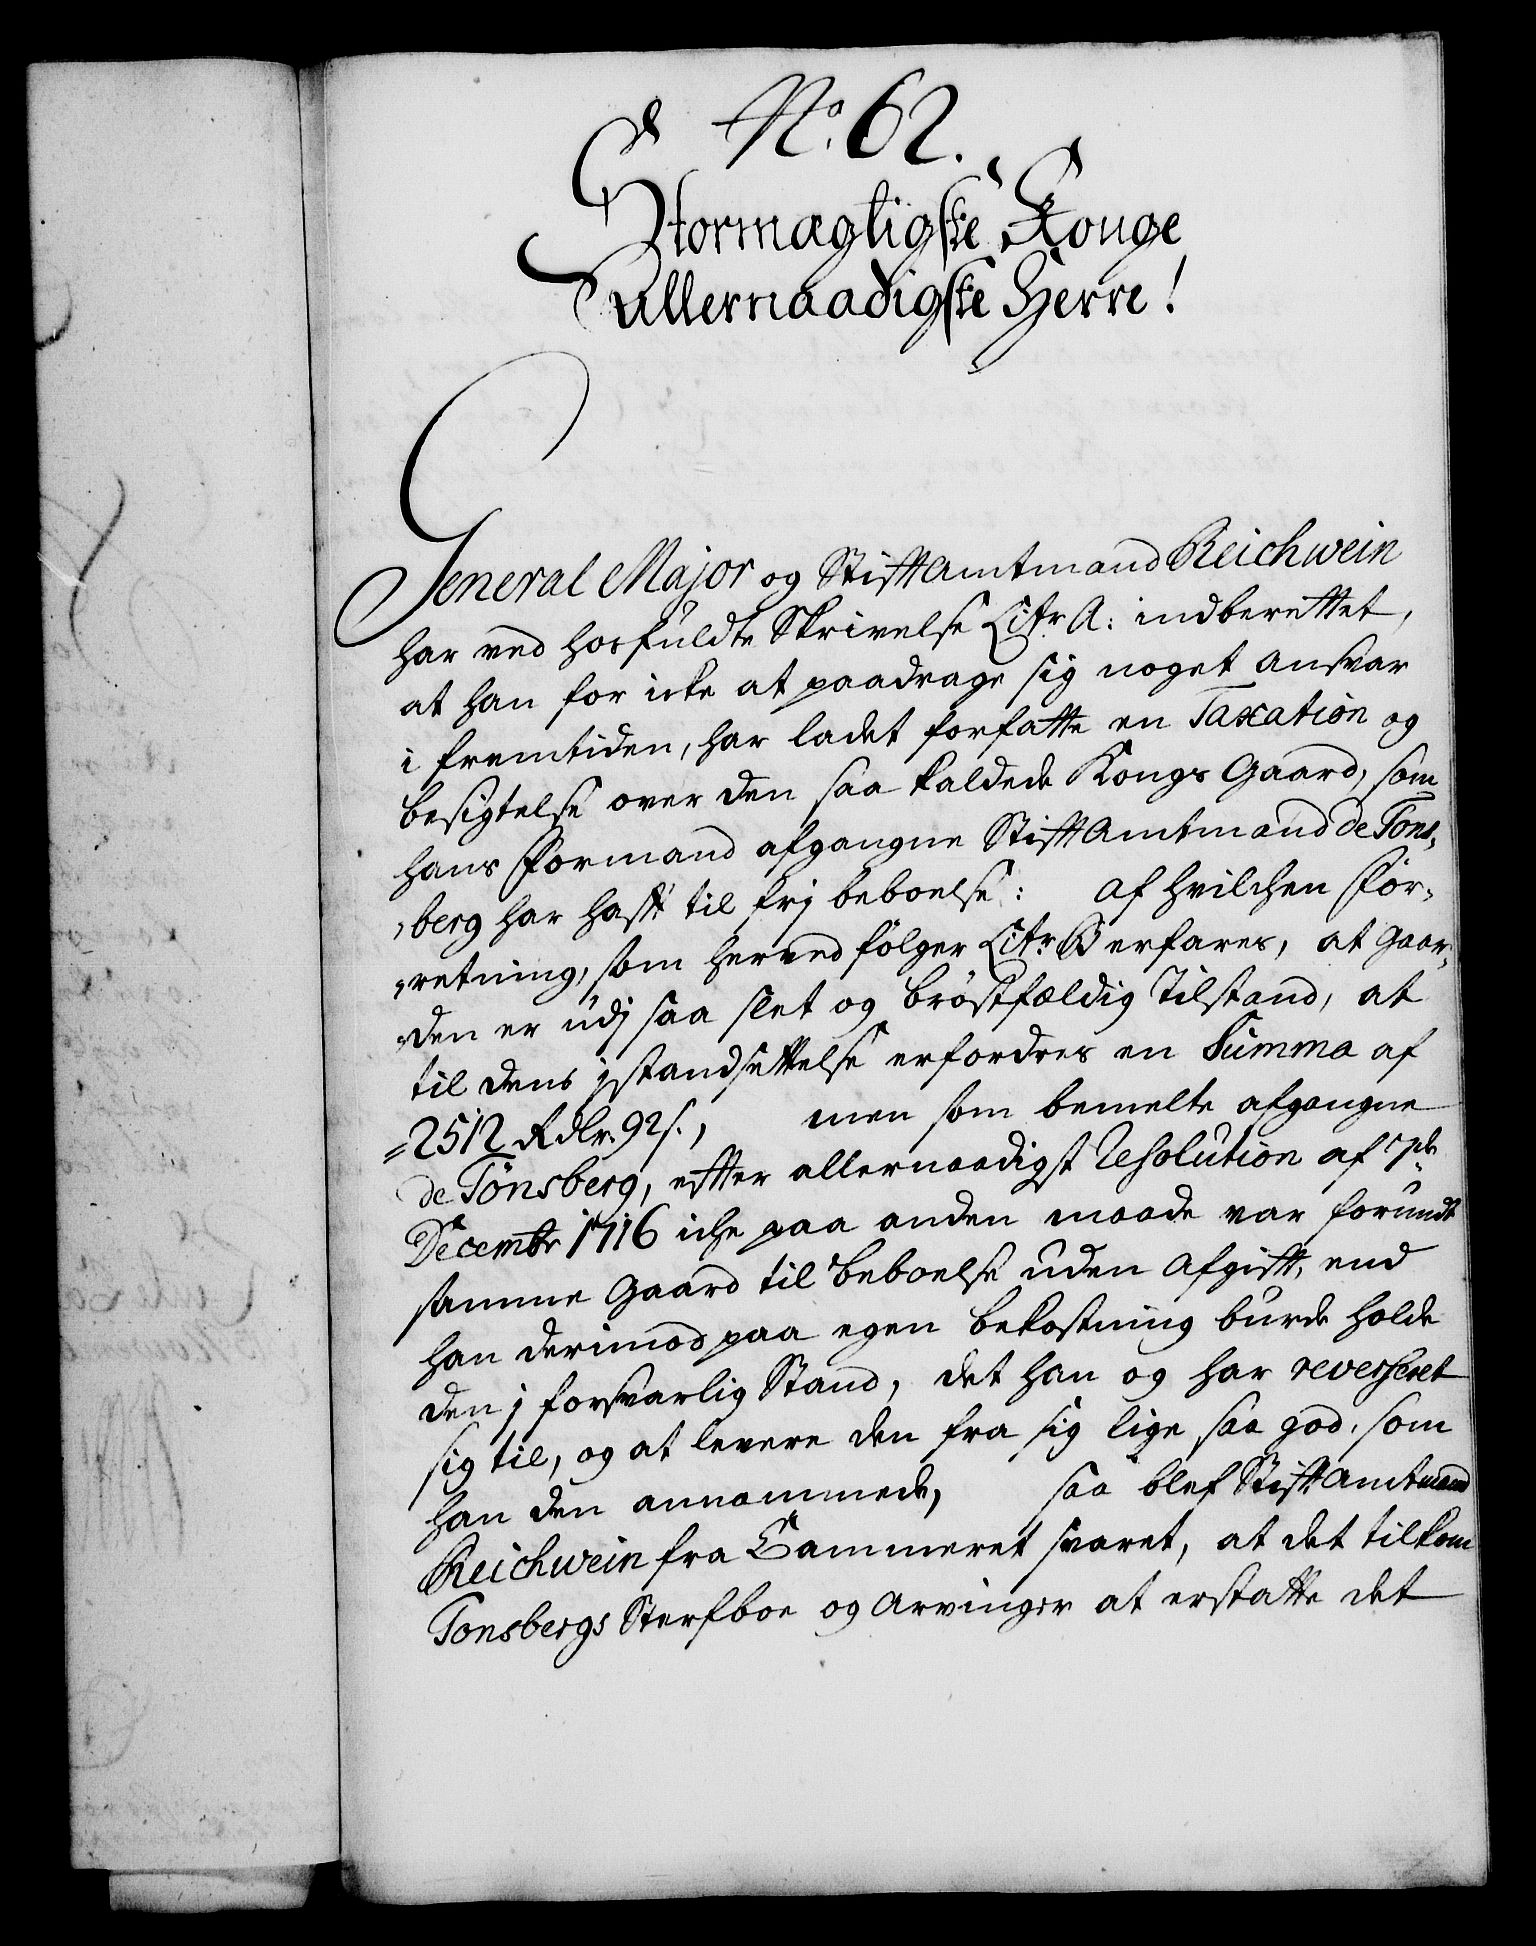 No. 62.
Stormagtigste Konge
Allernaadigste Herre!
General Major og Stiftamtmand Reichwein
har ved hosfuldte Skrivelse Litr A: indberettet,
at han for icke at paadrage sig noget ansvar
i fremtiden, har ladet forfatte en Taxation og
besigtelse over den saa kaldede Kongs Gaard, som
hans Formand afgangne Stiftamtmand de Tons-
berg har hafft til frj beboelse: af hvilchen For-
retning, som herved følger Litr B erfares, at Gaar-
den er udj saa slet og brøstfældig Tilstand, at
til dens jstandsettelse erfordres en Summa af
2512 Rdlr. 92 s., men som bemelte afgangne
de Tonsberg, efter allernaadigst Resolution af 7de
Decembr 1716 iche paa anden maade var forundt
samme Gaard til beboelse uden Afgift, end
han derimod paa egen bekostning burde holde
den j forsvarlig Stand, det han og har reverseret
sig til, og at levere den fra sig lige saa god, som
han den annammede, saa blef Stiftamtmand
Reichwein fra Cammeret svaret, at det tilkom
Tonsbergs Sterfboe og Arvinger at erstatte det